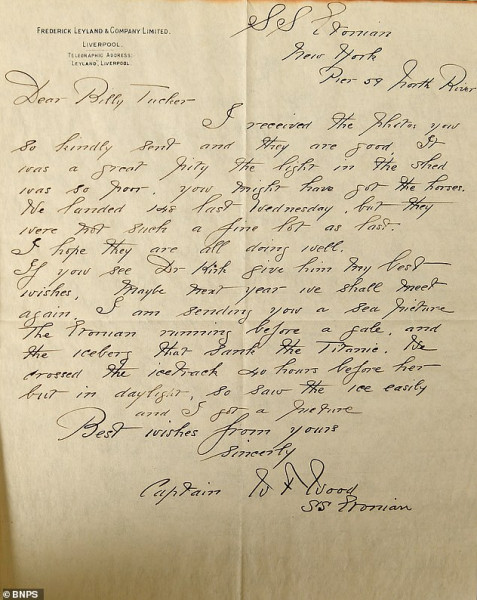 FREDERICK LEYLAND & COMPANY LIMITED.
LIVERPOOL.
TELEGRAPHIC ADDRESS:
"LEYLAND", LIVERPOOL.
SS Etonian
New York
Pier 59 North River
Dear Billy Tucker
I received the photos you
so kindly sent and they are good. It
was a great pity the light in the shed
was so poor, you might have got the horses.
We landed 148 last Wednesday, but they
were not such a fine lot as last.
I hope they are all doing well.
If you see Dr Kirk give him my best
wishes, Maybe next year we shall meet
again. I am sending you a sea picture
The Etonian running before a gale, and
the iceberg that sank the Titanic. We
crossed the icetrack 40 hours before her
but in daylight, so saw the ice easily
and I got a picture
Best wishes from yours
Sincerely
Captain W F Wood
SS Etonian
© BNPS